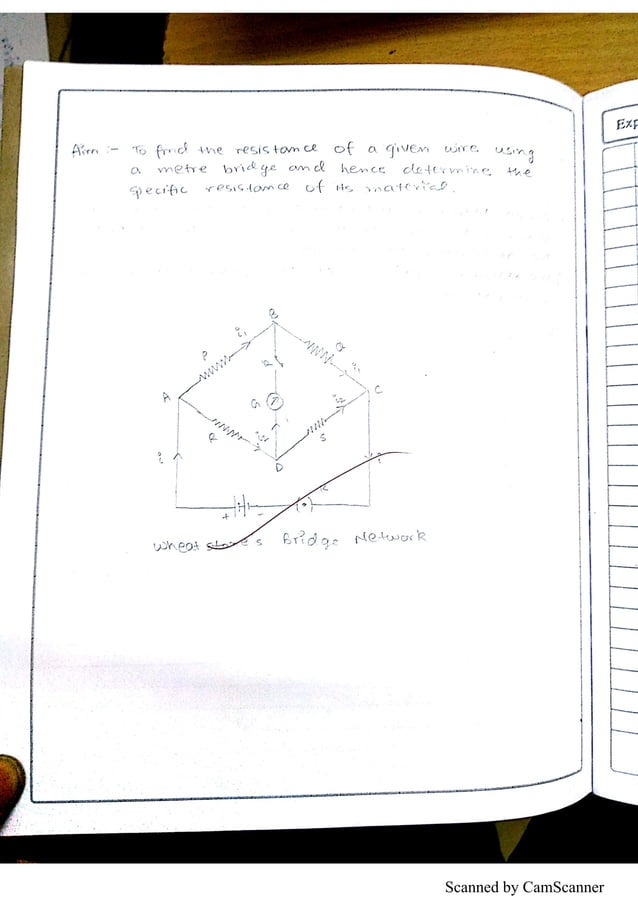 Aim :- To find the resistance of a given wire using
a metre bridge and hence determine the
specific resistance of its material.
Exp
B
P
i₁
Q
i₁
K
A
G
C
R
i₂
i₂
S
D
i
i
+
-
K
Wheatstone's Bridge Network
Scanned by CamScanner